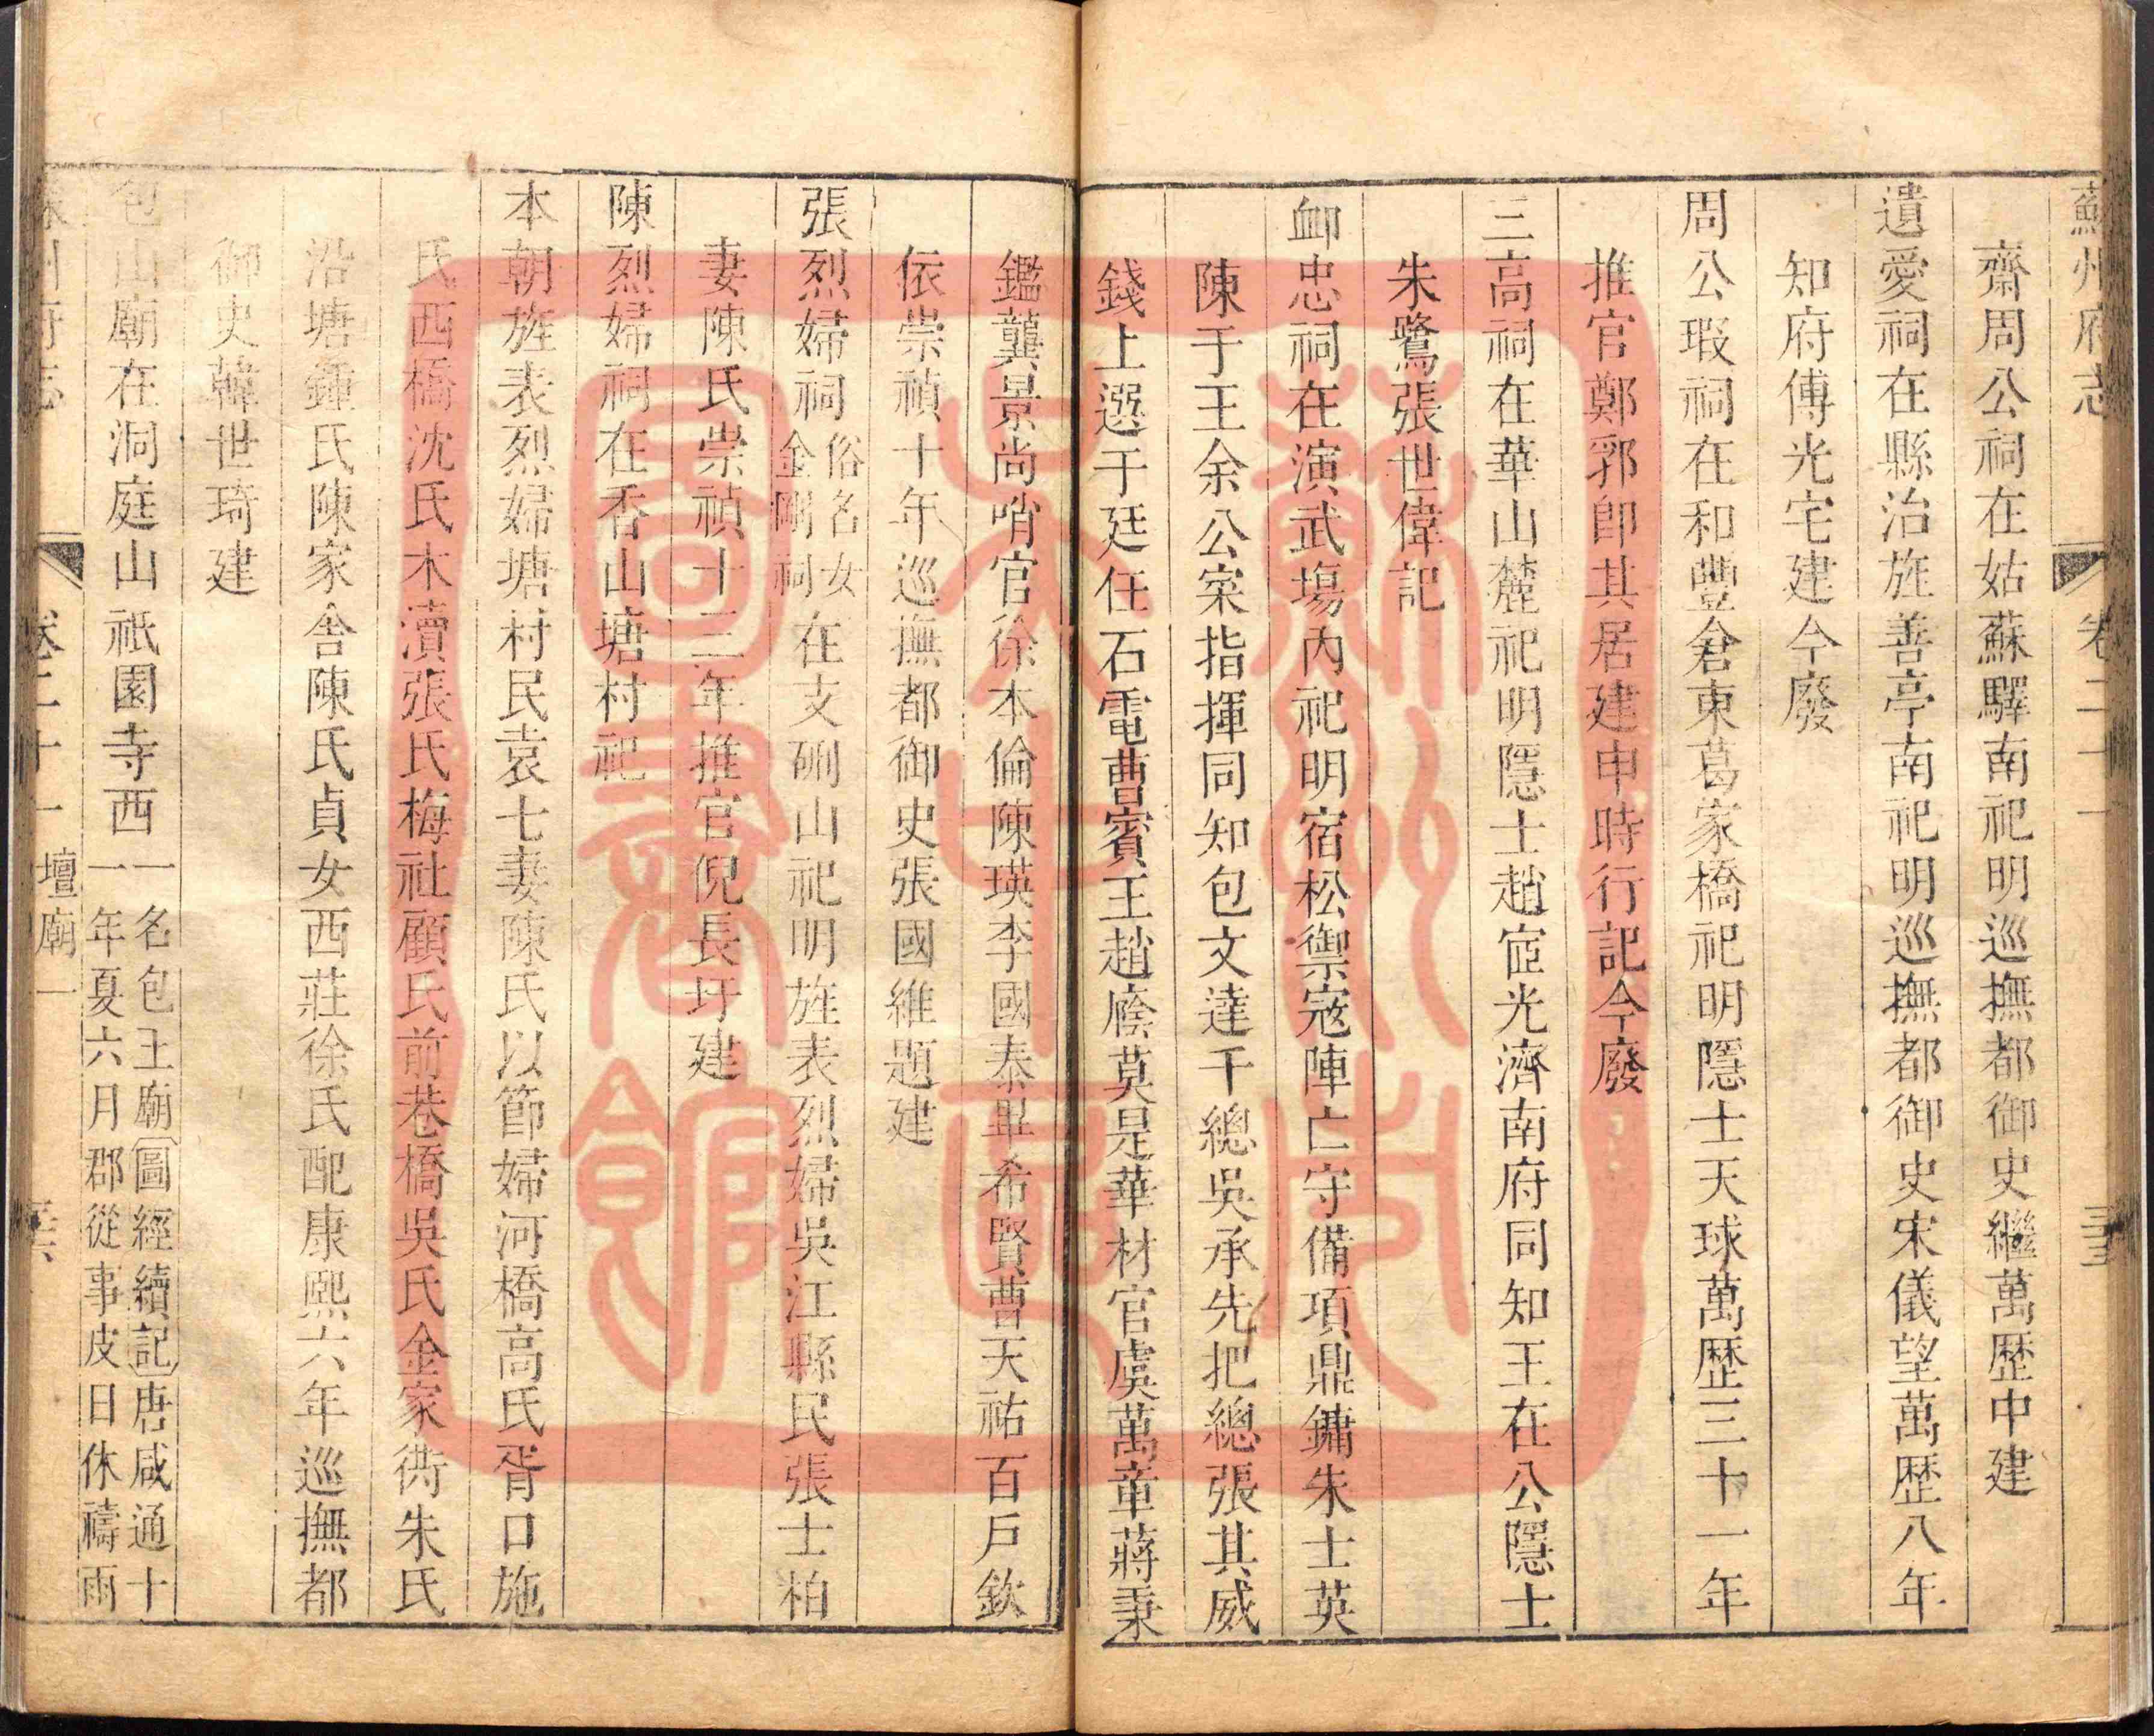 蘇州府志 卷二十一
齋周公祠在姑蘇驛南祀明巡撫都御史繼萬歷中建
遺愛祠在縣治旌善亭南祀明巡撫都御史宋儀望萬歷八年
知府傅光宅建今廢
周公瑕祠在和豐倉東葛家橋祀明隱士天球萬歷三十一年
推官鄭郛卽其居建申時行記今廢
三高祠在華山麓祀明隱士趙宧光濟南府同知王在公隱士
朱鷺張世偉記
卹忠祠在演武塲內祀明宿松禦寇陣亡守備項鼎鏞朱士英
陳于王余公寀指揮同知包文達千總吳承先把總張其威
錢上選于廷任石電曹賓王趙廕莫是華材官虞萬章蔣秉
鑑龔景尚哨官徐本倫陳瑛李國泰畢希賢曹天祐百戶欽
依崇禎十年巡撫都御史張國維題建
張烈婦祠俗名女金剛祠在支硎山祀明旌表烈婦吳江縣民張士柏
妻陳氏崇禎十三年推官倪長圩建
陳烈婦祠在香山塘村祀
本朝旌表烈婦塘村民袁七妻陳氏以節婦河橋高氏胥口施
氏西橋沈氏木瀆張氏梅社顧氏前巷橋吳氏金家衖朱氏
沿塘鍾氏陳家舍陳氏貞女西莊徐氏配康熙六年巡撫都
御史韓世琦建
包山廟在洞庭山祇園寺西一名包王廟圖經續記唐咸通十一年夏六月郡從事皮日休禱雨
卷二十一 壇廟一